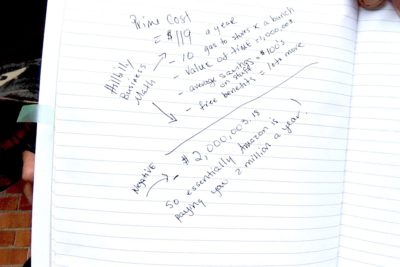 Prime Cost
= $119 a year
- 10 gas to stores x a bunch
- Value of time = 1,000,000
- average savings
on stuff = $100's
- free benefits = lots more
Hillbilly
Business
Math
Negative
- $2,000,003.15
So essentially Amazon is
paying you 2 million a year!